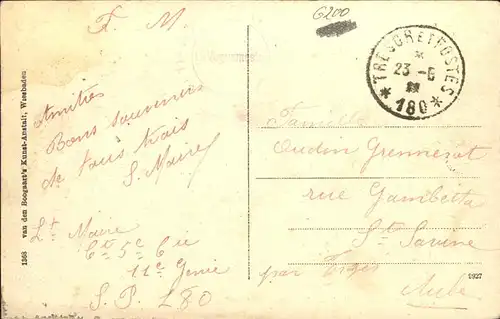 F. M.
6200
TRESOR ET POSTES
23 - 6
* 180 *
Amitiés
Bons souvenirs
de tous trois
S. Maire
Lt Maire
Cie 5e
11e Génie
S. P. 180
Famille
Oudin Grennerat
rue Gambetta
Ste Savine
par Troyes
Aube
1368 van den Boogaart's Kunst-Anstalt, Wiesbaden